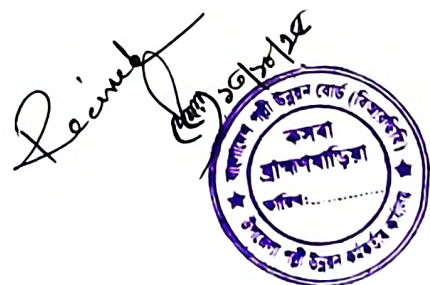 Received
১৩/১০/২৫
বাংলাদেশ পল্লী উন্নয়ন বোর্ড (বিআরডিবি)
কসবা
ব্রাহ্মণবাড়িয়া
তারিখ:..............
উপজেলা পল্লী উন্নয়ন কর্মকর্তার কার্যালয়